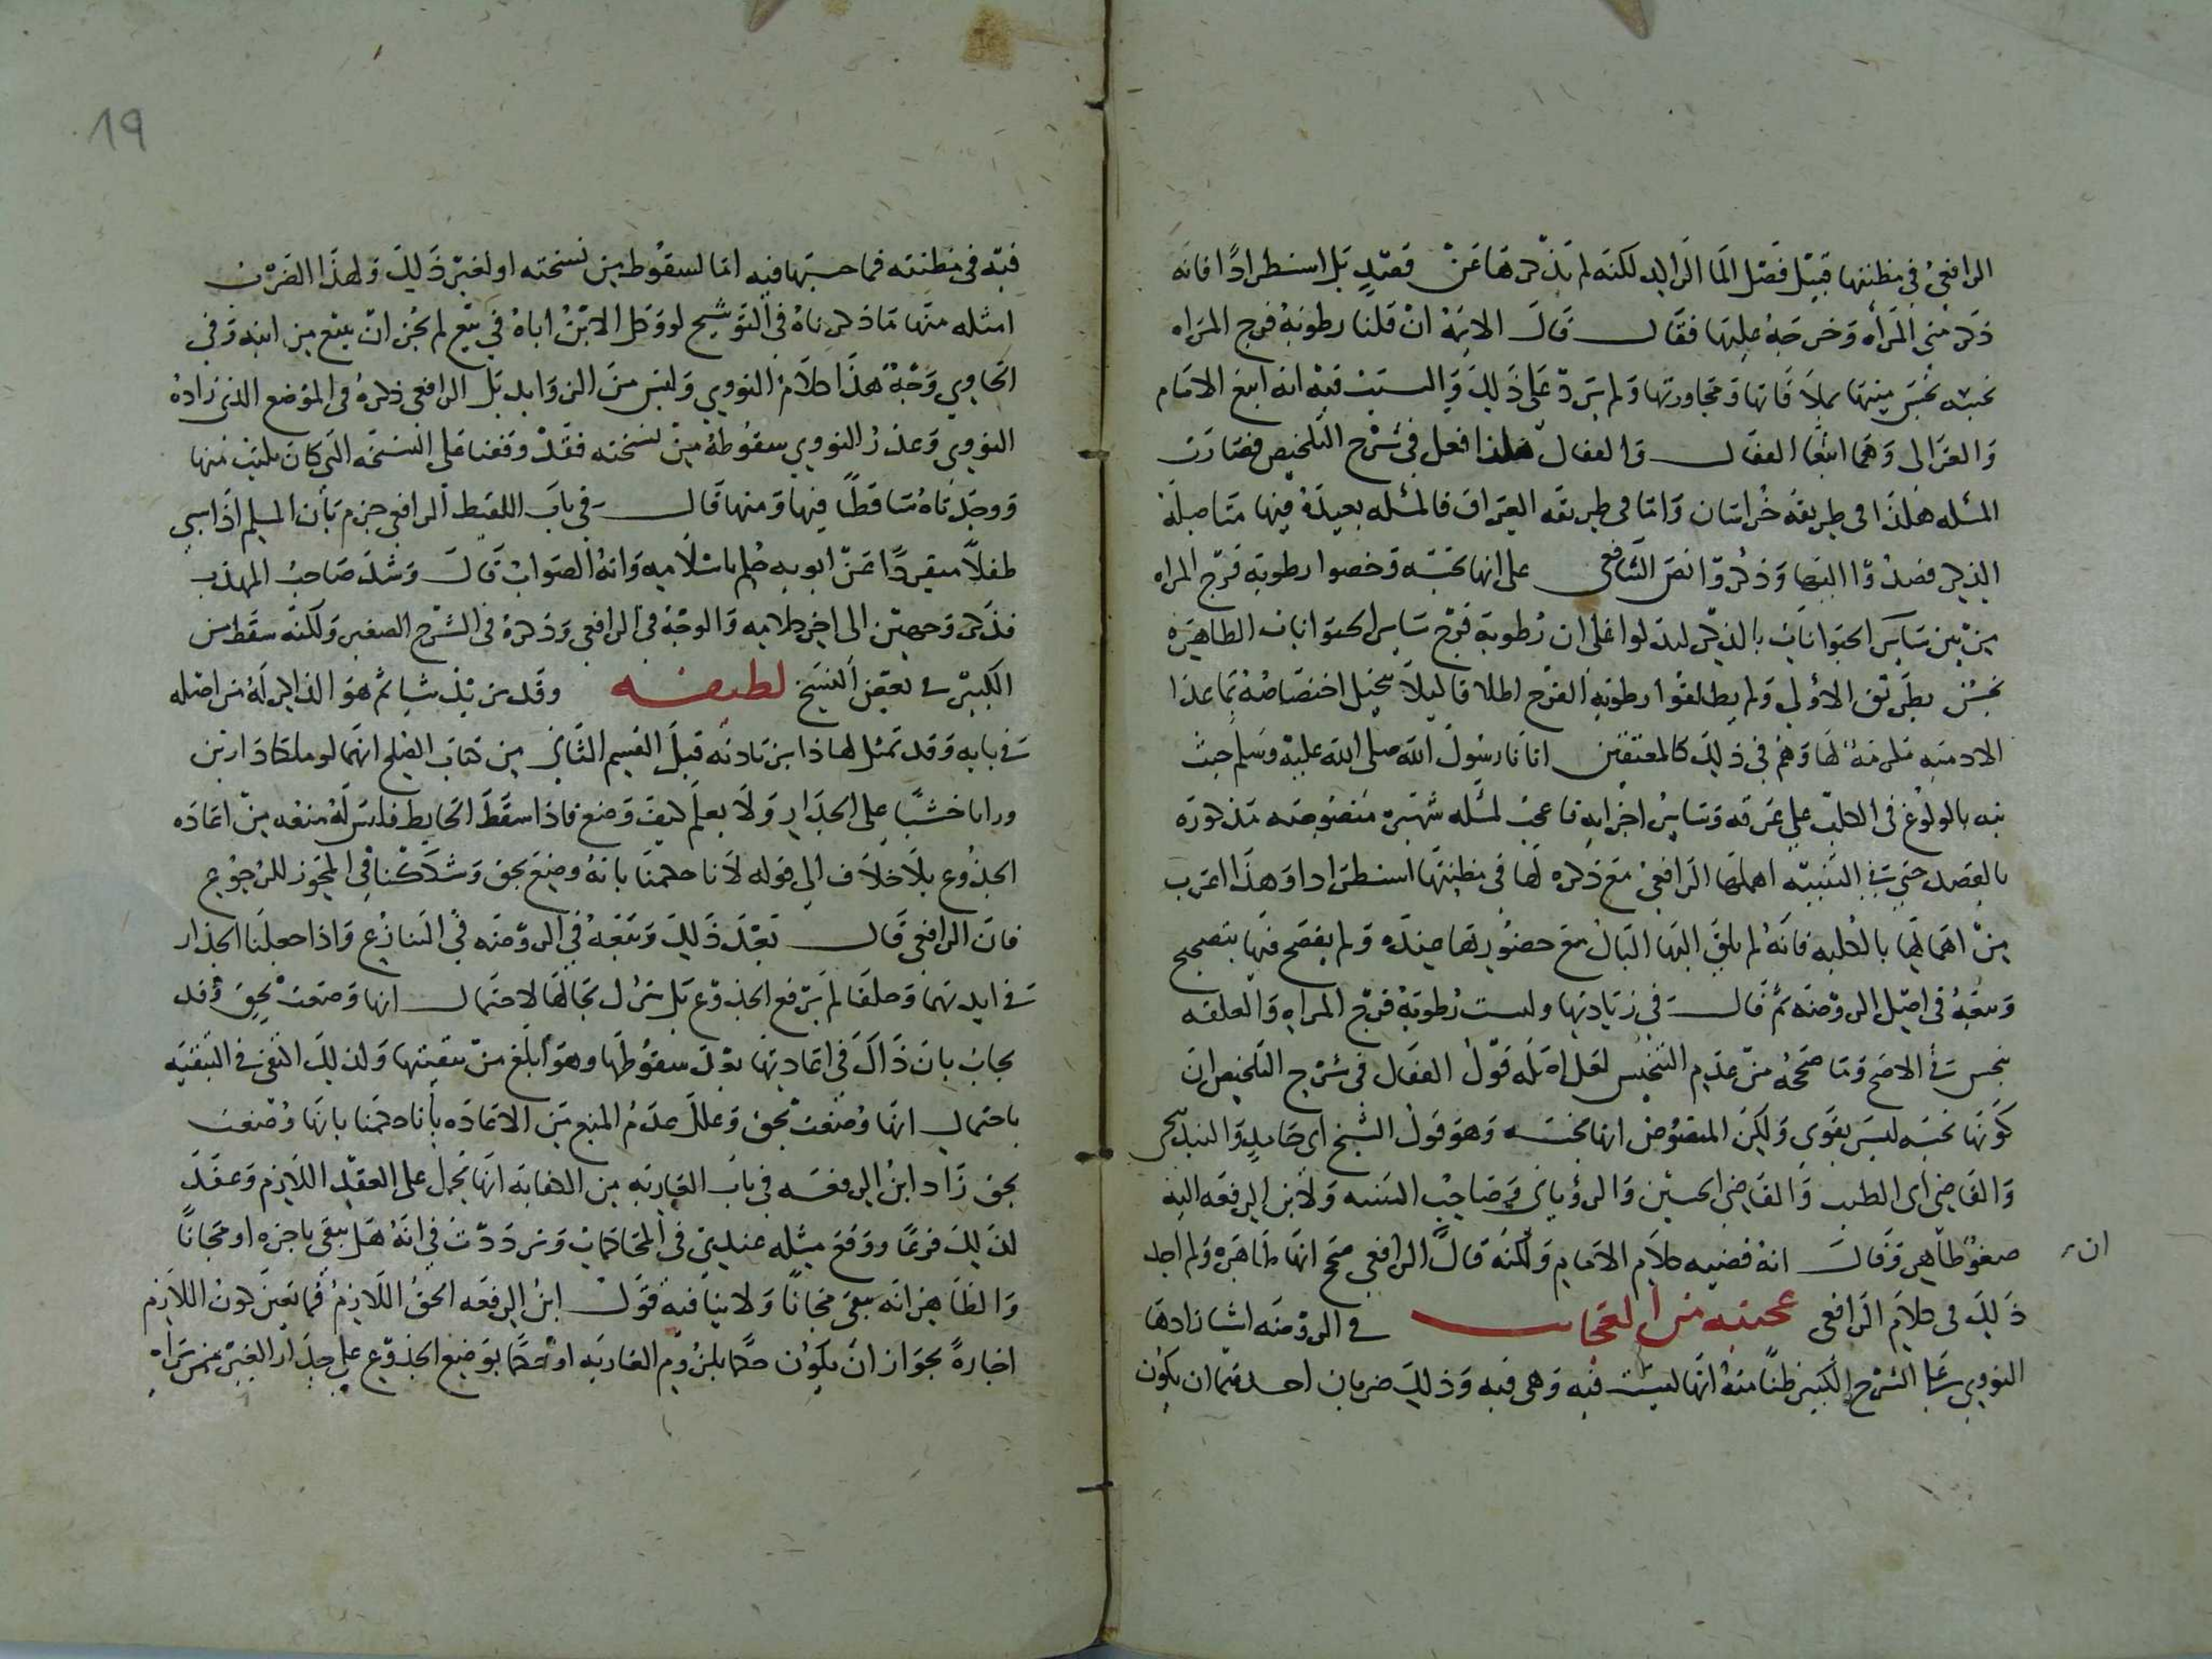 الرافعي في مظنتها قبيل فصل الما الراكد لكنه لم يذكرها عن قصد بل استطرادا فانه
ذكر مني المراه وخرجه عليها فقال قال الايمة ان قلنا رطوبة فرج المراه
نجسه نجس منيها بملاقاتها ومجاورتها ولم يزد على ذلك والسبب فيه انه اتبع الامام
والغزالى وهما اتبعا القفال والقفال هكذا فعل في شرح التلخيص فصارت
المسله هكذا في طريقة خراسان واما في طريقه العراق فالمسله بعيدة فيها متاصلة
الذكر قصدوا اليها وذكروا نص الشافعي على انها نجسه وخصوا رطوبة فرج المراه
من بين ساير الحيوانات بالذكر ليدلوا على ان رطوبة فرج ساير الحيوانات الطاهره
نجس بطريق الاولى ولم يطلقوا رطوبة الفرج اطلاقا ليلا يتخيل اختصاصه بما عدا
الادميه مكرمة لها وهم في ذلك كالمقتفين اثار رسول الله صلى الله عليه وسلم حيث
نبه بالولوغ في الكلب على عرقه وساير اجزايه فاعجب لمسله شهيرة منصوصه مذكوره
بالقصد حتى في التنبيه اهملها الرافعي مع ذكره لها في مظنتها استطرادا وهذا اغرب
من اهمالها بالكليه فانه لم يلق اليها البال مع حضورها عنده ولم يفصح فيها بتصحيح
وتبعه في اصل الروضه ثم قال في زيادتها وليست رطوبة فرج المراه والعلقه
بنجس في الاصح وما صححه من عدم التنجيس لعل اصله قول القفال في شرح التلخيص ان
كونها نجسه ليس بقوي ولكن المنصوص انها نجسه وهو قول الشيخ ابي حامد والبندنيجي
والقاضي ابي الطيب والقاضي الحسين والروياني وصاحب التنبيه ولابن الرفعه اليه
صغو ظاهر وقال انه قضيه كلام الامام ولكنه قال ان الرافعي صحح انها طاهره ولم اجد
ذلك في كلام الرافعي عجيبه من العجاب في الروضه اشيا زادها
النووي على الشرح الكبير ظنا منه انها ليست فيه وهي فيه وذلك ضربان احدهما ان يكون
فيه في مظنته فما حسبها فيه اما لسقوط من نسخته او لغير ذلك ولهذا الضرب
امثله منها ما ذكرناه في التوشيح لو وكل الابن اباه في بيع لم يجز ان يبيع من ابنه وفي
الحاوي وجه هذا كلام النووي وليس من الزوايد بل الرافعي ذكره في الموضع الذي زاده
النووي وعذر النووي سقوطه من نسخته فقد وقفنا على النسخه التي كان يكتب منها
ووجدناه ساقطا فيها ومنها قال في باب اللقيط الرافعي جزم بان المسلم اذا سبي
طفلا منفردا عن ابويه حكم باسلامه وانه الصواب قال وشذ صاحب المهذب
فذكر وجهين الى اخر كلامه والوجه في الرافعي وذكره في الشرح الصغير ولكنه سقط من
الكبير في بعض النسخ لطيفه وقد يزيد شيا ثم هو الذاكر له من اصله
في بابه وقد تمثل لهذا بزيادته قبل القسم الثاني من كتاب الصلح انهما لو ملكا دارين
وراىا خشبا على الجدار ولا يعلم كيف وضع فاذا سقط الحايط فليس له منعه من اعاده
الجذوع بلا خلاف الى قوله لانا حكمنا بانه وضع بحق وشككنا في المجوز للرجوع
فان الرافعي قال بعد ذلك وتبعه في الروضه في التنازع واذا جعلنا الجدار
في ايديهما وحلفا لم يرفع الجذوع بل يترك بحالها لاحتمال انها وضعت بحق وقد
يجاب بان ذاك في اعادتها بعد سقوطها وهو ابلغ من تبقيتها ولذلك اكتفى في التبقيه
باحتمال انها وضعت بحق وعلل عدم المنع من الاعاده بانا حكمنا بانها وضعت
بحق زاد ابن الرفعه في باب العاريه من الكفايه انها تحمل على العقد اللازم وعقد
لذلك فرعا ووقع مثله عندي في المحاكمات وترددت في انه هل يبقى باجره او مجانا
والظاهر انه يبقى مجانا ولا ينافيه قول ابن الرفعه الحق اللازم فما تعين كون اللازم
اجارة بجواز ان يكون حكما بلزوم العاريه او حكما بوضع الجذوع على جدار الغير ممن يراه
ان
19